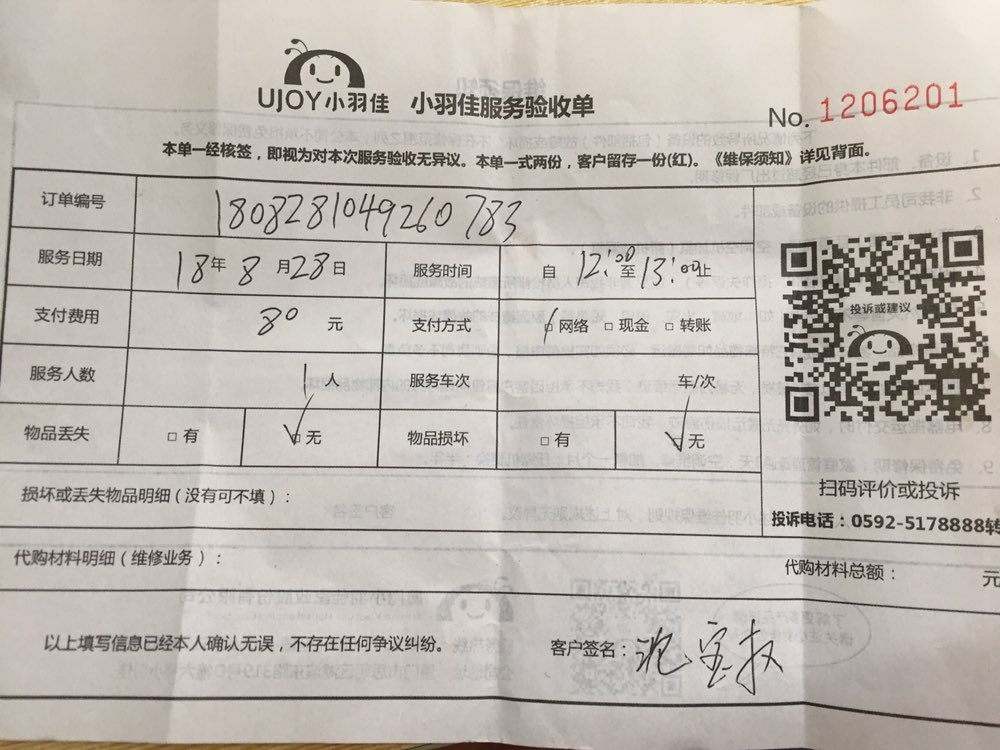 UJOY小羽佳 小羽佳服务验收单
No. 1206201
本单一经核签，即视为对本次服务验收无异议。本单一式两份，客户留存一份(红)。《维保须知》详见背面。
订单编号 1808281049260783
服务日期 18年8月28日 服务时间 自12:00至13:00止
支付费用 80 元 支付方式 ☑网络 □现金 □转账
投诉或建议
服务人数 1人 服务车次 车/次
物品丢失 □有 ☑无 物品损坏 □有 ☑无
扫码评价或投诉
损坏或丢失物品明细（没有可不填）：
投诉电话：0592-5178888转
代购材料明细（维修业务）：
代购材料总额： 元
以上填写信息已经本人确认无误，不存在任何争议纠纷。 客户签名：